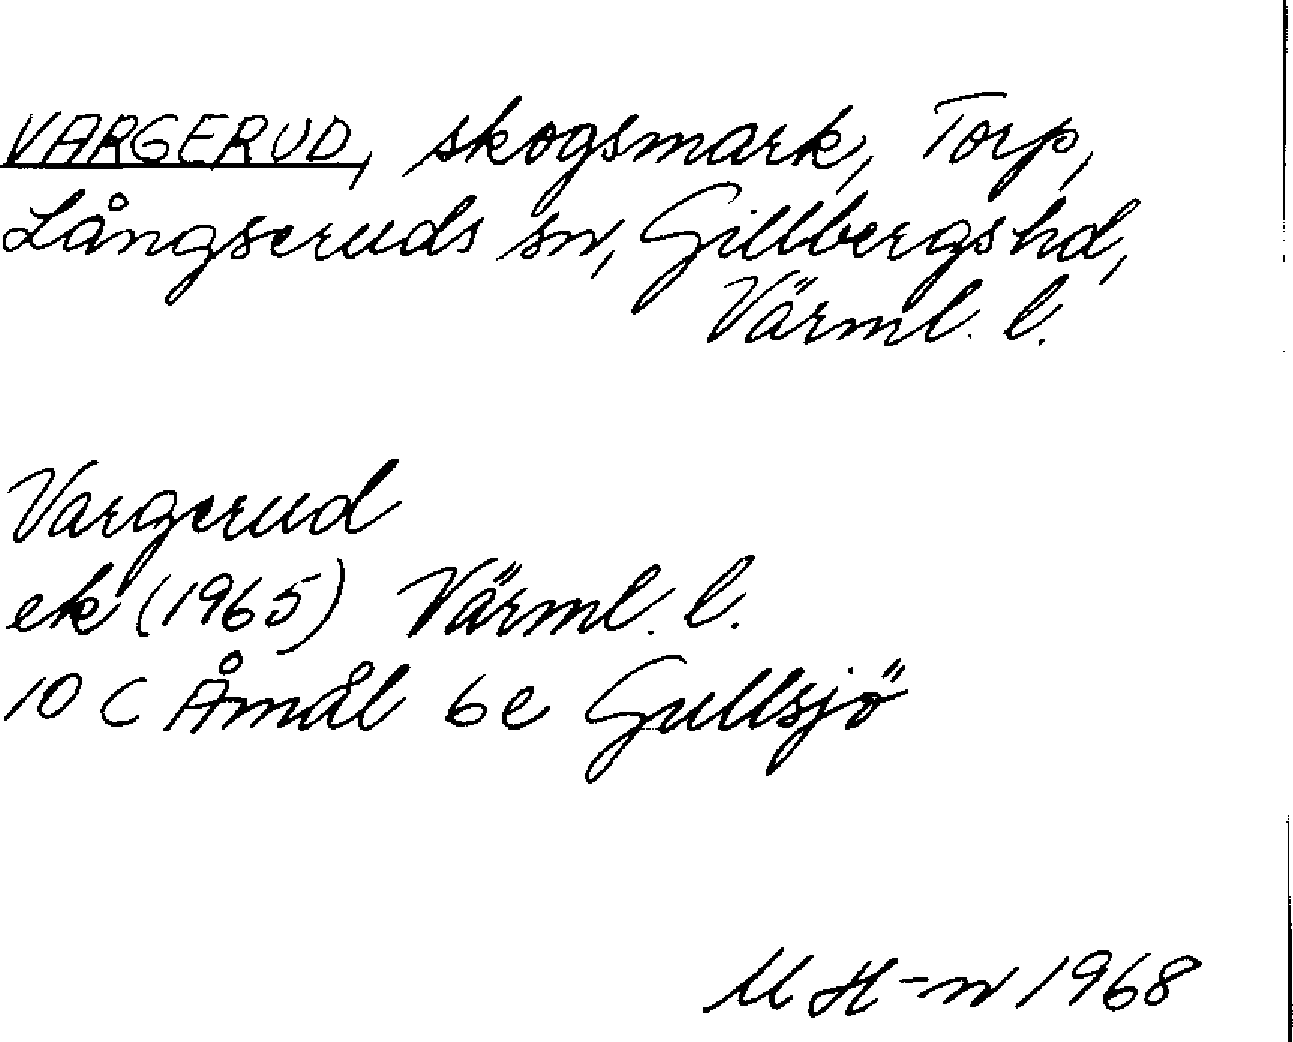 VARGERUD, skogsmark, Torp,
Långseruds sn, Gillbergs hd,
Värml. l.
Vargerud
ek (1965) Värml. l.
10 C Åmål 6e Gullsjö
M H-n 1968